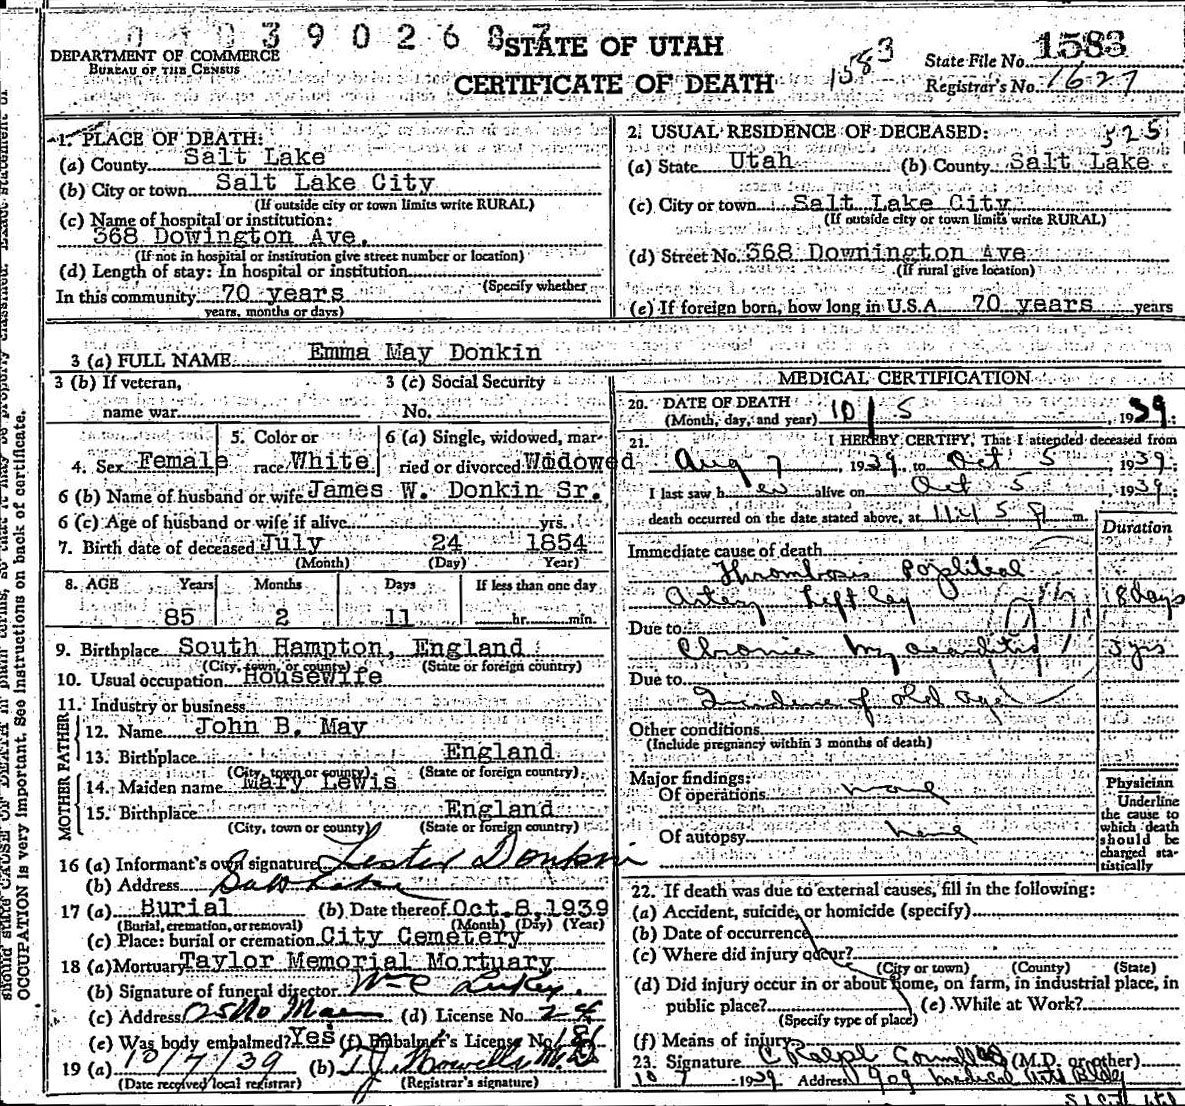 0 1 0 3 9 0 2 6 8 7
STATE OF UTAH
DEPARTMENT OF COMMERCE
BUREAU OF THE CENSUS
CERTIFICATE OF DEATH
1583
State File No. 1583
Registrar's No. 1627
1. PLACE OF DEATH:
(a) County Salt Lake
(b) City or town Salt Lake City
(If outside city or town limits write RURAL)
(c) Name of hospital or institution:
368 Dowington Ave.
(If not in hospital or institution give street number or location)
(d) Length of stay: In hospital or institution
(Specify whether
In this community 70 years
years, months or days)
2. USUAL RESIDENCE OF DECEASED: 525
(a) State Utah (b) County Salt Lake
(c) City or town Salt Lake City
(If outside city or town limits write RURAL)
(d) Street No. 368 Downington Ave
(If rural give location)
(e) If foreign born, how long in U.S.A. 70 years years
3 (a) FULL NAME Emma May Donkin
3 (b) If veteran,
name war
3 (c) Social Security
No.
4. Sex Female
5. Color or
race White
6 (a) Single, widowed, mar-
ried or divorced Widowed
6 (b) Name of husband or wife James W. Donkin Sr.
6 (c) Age of husband or wife if alive yrs.
7. Birth date of deceased July 24 1854
(Month) (Day) Year)
8. AGE Years Months Days If less than one day
85 2 11 hr. min.
9. Birthplace South Hampton, England
(City, town, or county) (State or foreign country)
10. Usual occupation Housewife
11. Industry or business
FATHER
12. Name John B. May
13. Birthplace England
(City, town or county) (State or foreign country)
MOTHER
14. Maiden name Mary Lewis
15. Birthplace England
(City, town or county) (State or foreign country)
16 (a) Informant's own signature Lester Donkin
(b) Address Salt Lake
17 (a) Burial (b) Date thereof Oct. 8, 1939
(Burial, cremation, or removal) (Month) (Day) (Year)
(c) Place: burial or cremation City Cemetery
18 (a) Mortuary Taylor Memorial Mortuary
(b) Signature of funeral director
(c) Address No Main (d) License No.
(e) Was body embalmed? Yes (f) Embalmer's License No.
19 (a) 10/7/39 (b) T.J. Howells M.D.
(Date received local registrar) (Registrar's signature)
MEDICAL CERTIFICATION
20. DATE OF DEATH
(Month, day, and year) 10 5, 1939.
21. I HEREBY CERTIFY, That I attended deceased from
Aug 7, 1939, to Oct 5, 1939.
I last saw her alive on Oct 5, 1939.
death occurred on the date stated above, at 11:15 m.
Duration
Immediate cause of death
Thrombosis Popliteal
Artery Left leg 18 days
Due to
Chronic Myocarditis 3 yrs
Due to
of Old Age
Other conditions
(Include pregnancy within 3 months of death)
Major findings:
Of operations none
Of autopsy none
Physician
Underline
the cause to
which death
should be
charged sta-
tistically
22. If death was due to external causes, fill in the following:
(a) Accident, suicide, or homicide (specify)
(b) Date of occurrence
(c) Where did injury occur?
(City or town) (County) (State)
(d) Did injury occur in or about home, on farm, in industrial place, in
public place? (e) While at Work?
(Specify type of place)
(f) Means of injury
23. Signature C Ralph (M.D. or other)
10 7 1939 Address 909 Medical Arts Bldg
OCCUPATION is very important. See instructions on back of certificate.
should state CAUSE OF DEATH in plain terms, so that it may be properly classified. Exact statement of